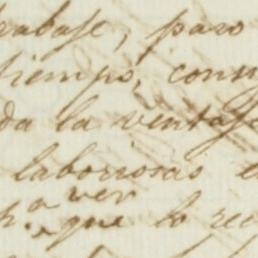 trabase, paso
tiempo, con
da la ventaja
laboriosas e
a ver
p. a que lo rec